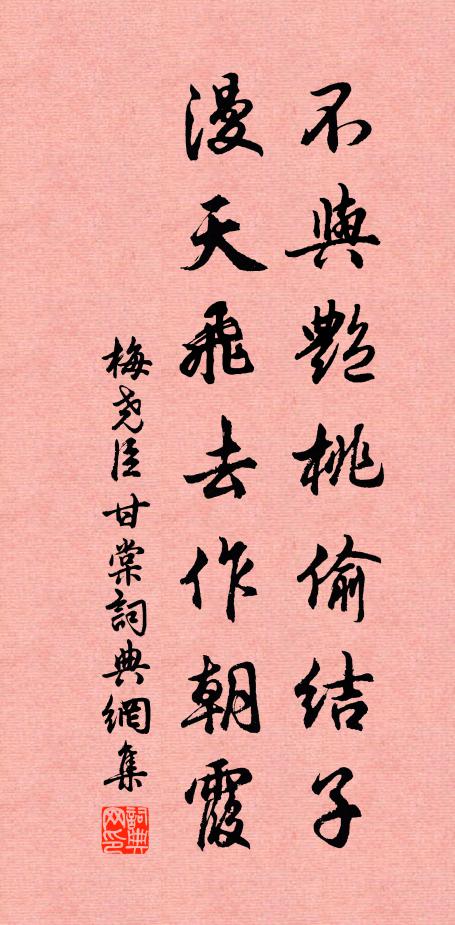 不與艷桃偷結子
漫天飛去作朝霞
梅堯臣甘棠詞典網集
詞典網印